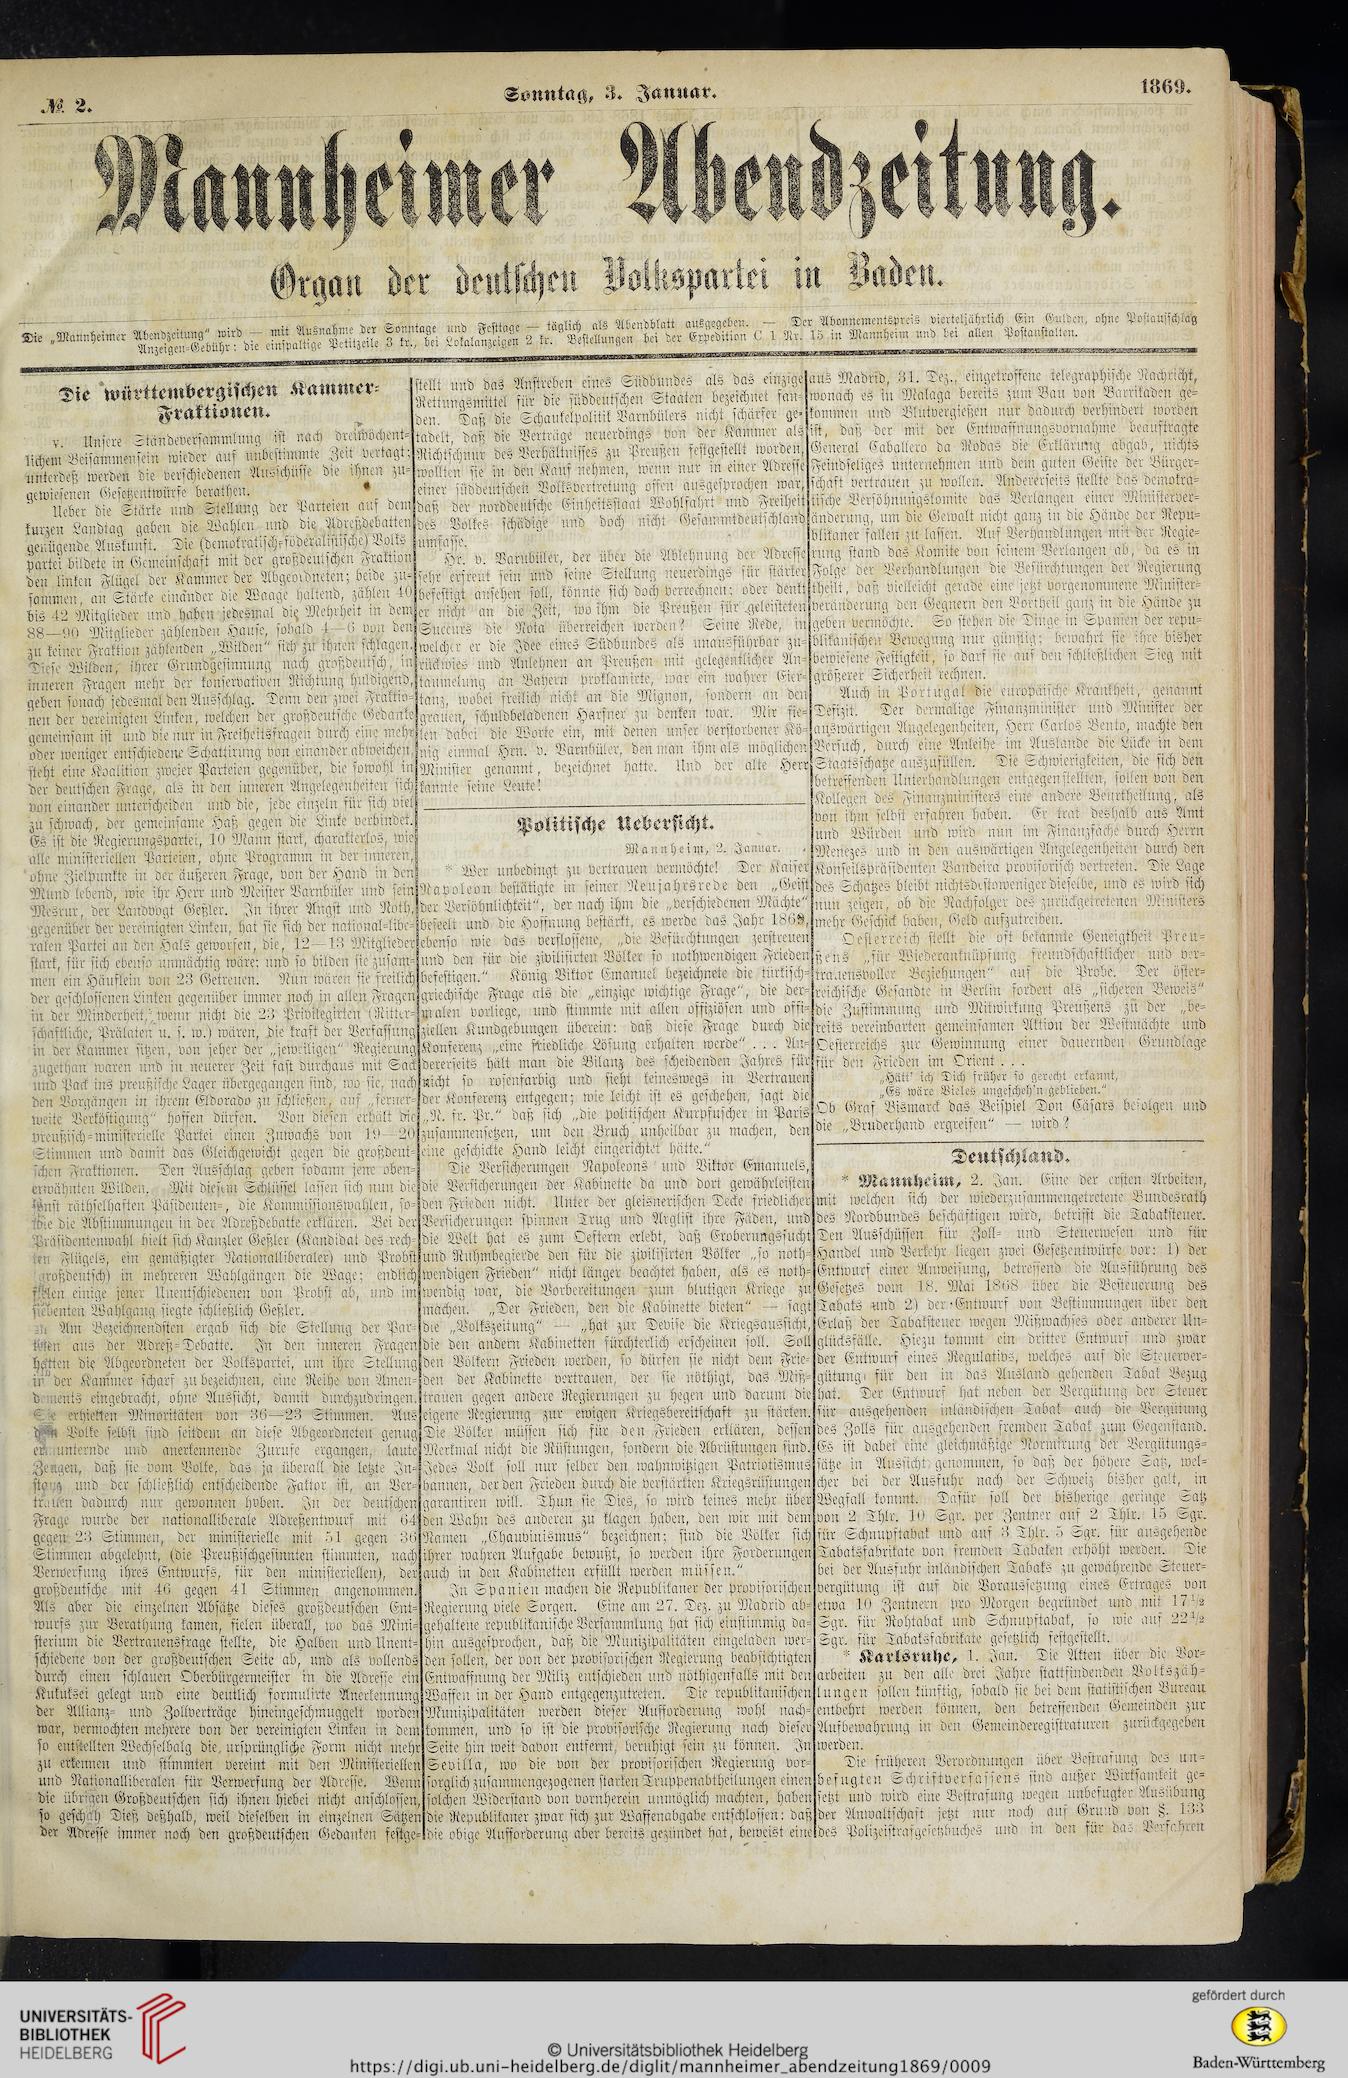 № 2.
Sonntag, 3. Januar.
1869.
Mannheimer Abendzeitung.
Organ der deutschen Volkspartei in Baden.
Die „Mannheimer Abendzeitung“ wird — mit Ausnahme der Sonntage und Festtage — täglich als Abendblatt ausgegeben. — Der Abonnementspreis vierteljährlich Ein Gulden, ohne Postaufschlag
Anzeigen-Gebühr: die einspaltige Petitzeile 3 kr., bei Lokalanzeigen 2 kr. Bestellungen bei der Expedition C 1 Nr. 15 in Mannheim und bei allen Postanstalten.
Die württembergischen Kammer-
Fraktionen.
v. Unsere Ständeversammlung ist nach dreiwöchent-
lichem Beisammensein wieder auf unbestimmte Zeit vertagt;
unterdeß werden die verschiedenen Ausschüsse die ihnen zu-
gewiesenen Gesetzentwürfe berathen.
Ueber die Stärke und Stellung der Parteien auf dem
kurzen Landtag gaben die Wahlen und die Adreßdebatten
genügende Auskunft. Die (demokratisch-föderalistische) Volks
partei bildete in Gemeinschaft mit der großdeutschen Fraktion
den linken Flügel der Kammer der Abgeordneten; beide zu-
sammen, an Stärke einander die Waage haltend, zählen 40
bis 42 Mitglieder und haben jedesmal die Mehrheit in dem
88—90 Mitglieder zählenden Hause, sobald 4—6 von den
zu keiner Fraktion zählenden „Wilden“ sich zu ihnen schlagen.
Diese Wilden, ihrer Grundgesinnung nach großdeutsch, in
inneren Fragen mehr der konservativen Richtung huldigend,
geben sonach jedesmal den Ausschlag. Denn den zwei Fraktio-
nen der vereinigten Linken, welchen der großdeutsche Gedanke
gemeinsam ist und die nur in Freiheitsfragen durch eine mehr
oder weniger entschiedene Schattirung von einander abweichen,
steht eine Koalition zweier Parteien gegenüber, die sowohl in
der deutschen Frage, als in den inneren Angelegenheiten sich
von einander unterscheiden und die, jede einzeln für sich viel
zu schwach, der gemeinsame Haß gegen die Linke verbindet.
Es ist die Regierungspartei, 10 Mann stark, charakterlos, wie
alle ministeriellen Parteien, ohne Programm in der inneren,
ohne Zielpunkte in der äußeren Frage, von der Hand in den
Mund lebend, wie ihr Herr und Meister Varnbüler und sein
Mesrur, der Landvogt Geßler. In ihrer Angst und Noth,
gegenüber der vereinigten Linken, hat sie sich der national-libe-
ralen Partei an den Hals geworfen, die, 12—13 Mitglieder
stark, für sich ebenso unmächtig wäre; und so bilden sie zusam-
men ein Häuflein von 23 Getreuen. Nun wären sie freilich
der geschlossenen Linken gegenüber immer noch in allen Fragen
in der Minderheit, wenn nicht die 23 Privilegirten (Ritter-
schaftliche, Prälaten u. s. w.) wären, die kraft der Verfassung
in der Kammer sitzen, von jeher der „jeweiligen“ Regierung
zugethan waren und in neuerer Zeit fast durchaus mit Sack
und Pack ins preußische Lager übergegangen sind, wo sie, nach
den Vorgängen in ihrem Eldorado zu schließen, auf „ferner-
weite Verköstigung“ hoffen dürfen. Von diesen erhält die
preußisch-ministerielle Partei einen Zuwachs von 19—20
Stimmen und damit das Gleichgewicht gegen die großdeut-
schen Fraktionen. Den Ausschlag geben sodann jene oben-
erwähnten Wilden. Mit diesem Schlüssel lassen sich nun die
sonst räthselhaften Päsidenten-, die Kommissionswahlen, so-
wie die Abstimmungen in der Adreßdebatte erklären. Bei der
Präsidentenwahl hielt sich Kanzler Geßler (Kandidat des rech-
ten Flügels, ein gemäßigter Nationalliberaler) und Probst
(großdeutsch) in mehreren Wahlgängen die Wage; endlich
fielen einige jener Unentschiedenen von Probst ab, und im
siebenten Wahlgang siegte schließlich Geßler.
Am Bezeichnendsten ergab sich die Stellung der Par-
teien aus der Adreß-Debatte. In den inneren Fragen
hatten die Abgeordneten der Volkspartei, um ihre Stellung
in der Kammer scharf zu bezeichnen, eine Reihe von Amen-
dements eingebracht, ohne Aussicht, damit durchzudringen.
Sie erhielten Minoritäten von 36—23 Stimmen. Aus
dem Volke selbst sind seitdem an diese Abgeordneten genug
ermunternde und anerkennende Zurufe ergangen, laute
Zeugen, daß sie vom Volke, das ja überall die letzte In-
stanz und der schließlich entscheidende Faktor ist, an Ver-
trauen dadurch nur gewonnen hoben. In der deutschen
Frage wurde der nationalliberale Adreßentwurf mit 64
gegen 23 Stimmen, der ministerielle mit 51 gegen 36
Stimmen abgelehnt, (die Preußischgesinnten stimmten, nach
Verwerfung ihres Entwurfs, für den ministeriellen), der
großdeutsche mit 46 gegen 41 Stimmen angenommen.
Als aber die einzelnen Absätze dieses großdeutschen Ent-
wurfs zur Berathung kamen, fielen überall, wo das Mini-
sterium die Vertrauensfrage stellte, die Halben und Unent-
schiedene von der großdeutschen Seite ab, und als vollends
durch einen schlauen Oberbürgermeister in die Adresse ein
Kukuksei gelegt und eine deutlich formulirte Anerkennung
der Allianz- und Zollverträge hineingeschmuggelt worden
war, vermochten mehrere von der vereinigten Linken in dem
so entstellten Wechselbalg die ursprüngliche Form nicht mehr
zu erkennen und stimmten vereint mit den Ministeriellen
und Nationalliberalen für Verwerfung der Adresse. Wenn
die übrigen Großdeutschen sich ihnen hiebei nicht anschlossen,
so geschah Dieß deßhalb, weil dieselben in einzelnen Sätzen
der Adresse immer noch den großdeutschen Gedanken festge-
stellt und das Anstreben eines Südbundes als das einzige
Rettungsmittel für die süddeutschen Staaten bezeichnet fan-
den. Daß die Schaukelpolitik Varnbülers nicht schärfer ge-
tadelt, daß die Verträge neuerdings von der Kammer als
Richtschnur des Verhältnisses zu Preußen festgestellt worden,
wollten sie in den Kauf nehmen, wenn nur in einer Adresse
einer süddeutschen Volksvertretung offen ausgesprochen war,
daß der norddeutsche Einheitsstaat Wohlfahrt und Freiheit
des Volkes schädige und doch nicht Gesammtdeutschland
umfasse.
Hr. v. Varnbüler, der über die Ablehnung der Adresse
sehr erfreut sein und seine Stellung neuerdings für stärker
befestigt ansehen soll, könnte sich doch verrechnen; oder denkt
er nicht an die Zeit, wo ihm die Preußen für geleisteten
Succurs die Nota überreichen werden? Seine Rede, in
welcher er die Idee eines Südbundes als unausführbar zu-
rückwies und Anlehnen an Preußen mit gelegentlicher An-
taumelung an Bayern proklamirte, war ein wahrer Eier-
tanz, wobei freilich nicht an die Mignon, sondern an den
grauen, schuldbeladenen Harfner zu denken war. Mir fie-
len dabei die Worte ein, mit denen unser verstorbener Kö-
nig einmal Hrn. v. Varnbüler, den man ihm als möglichen
Minister genannt, bezeichnet hatte. Und der alte Herr
kannte seine Leute!
Politische Uebersicht.
Mannheim, 2. Januar.
* Wer unbedingt zu vertrauen vermöchte! Der Kaiser
Napoleon bestätigte in seiner Neujahrsrede den „Geist
der Versöhnlichkeit“, der nach ihm die „verschiedenen Mächte“
beseelt und die Hoffnung bestärkt, es werde das Jahr 1869,
ebenso wie das verflossene, „die Befürchtungen zerstreuen
und den für die zivilisirten Völker so nothwendigen Frieden
befestigen.“ König Viktor Emanuel bezeichnete die türkisch-
griechische Frage als die „einzige wichtige Frage“, die der-
malen vorliege, und stimmte mit allen offiziösen und offi-
ziellen Kundgebungen überein: daß diese Frage durch die
Konferenz „eine friedliche Lösung erhalten werde“ . . . An-
dererseits hält man die Bilanz des scheidenden Jahres für
nicht so rosenfarbig und sieht keineswegs in Vertrauen
der Konferenz entgegen; wie leicht ist es geschehen, sagt die
„N. fr. Pr.“ daß sich „die politischen Kurpfuscher in Paris
zusammensetzen, um den Bruch unheilbar zu machen, den
eine geschickte Hand leicht eingerichtet hätte.“
Die Versicherungen Napoleons und Viktor Emanuels,
die Versicherungen der Kabinette da und dort gewährleisten
den Frieden nicht. Unter der gleisnerischen Decke friedlicher
Versicherungen spinnen Trug und Arglist ihre Fäden, und
die Welt hat es zum Oeftern erlebt, daß Eroberungssucht
und Ruhmbegierde den für die zivilisirten Völker „so noth-
wendigen Frieden“ nicht länger beachtet haben, als es noth-
wendig war, die Vorbereitungen zum blutigen Kriege zu
machen. „Der Frieden, den die Kabinette bieten“ — sagt
die „Volkszeitung“ — „hat zur Devise die Kriegsaussicht,
die den andern Kabinetten fürchterlich erscheinen soll. Soll
den Völkern Frieden werden, so dürfen sie nicht dem Frie-
den der Kabinette vertrauen, der sie nöthigt, das Miß-
trauen gegen andere Regierungen zu hegen und darum die
eigene Regierung zur ewigen Kriegsbereitschaft zu stärken.
Die Völker müssen sich für den Frieden erklären, dessen
Merkmal nicht die Rüstungen, sondern die Abrüstungen sind.
Jedes Volk soll nur selber den wahnwitzigen Patriotismus
bannen, der den Frieden durch die verstärkten Kriegsrüstungen
garantiren will. Thun sie Dies, so wird keines mehr über
den Wahn des anderen zu klagen haben, den wir mit dem
Namen „Chauvinismus“ bezeichnen; sind die Völker sich
ihrer wahren Aufgabe bewußt, so werden ihre Forderungen
auch in den Kabinetten erfüllt werden müssen.“
In Spanien machen die Republikaner der provisorischen
Regierung viele Sorgen. Eine am 27. Dez. zu Madrid ab-
gehaltene republikanische Versammlung hat sich einstimmig da-
hin ausgesprochen, daß die Munizipalitäten eingeladen wer-
den sollen, der von der provisorischen Regierung beabsichtigten
Entwaffnung der Miliz entschieden und nöthigenfalls mit den
Waffen in der Hand entgegenzutreten. Die republikanischen
Munizipalitäten werden dieser Aufforderung wohl nach-
kommen, und so ist die provisorische Regierung nach dieser
Seite hin weit davon entfernt, beruhigt sein zu können. In
Sevilla, wo die von der provisorischen Regierung vor-
sorglich zusammengezogenen starken Truppenabtheilungen einen
solchen Widerstand von vornherein unmöglich machten, haben
die Republikaner zwar sich zur Waffenabgabe entschlossen: daß
die obige Aufforderung aber bereits gezündet hat, beweist eine
aus Madrid, 31. Dez., eingetroffene telegraphische Nachricht,
wonach es in Malaga bereits zum Bau von Barrikaden ge-
kommen und Blutvergießen nur dadurch verhindert worden
ist, daß der mit der Entwaffnungsvornahme beauftragte
General Caballero da Rodas die Erklärung abgab, nichts
Feindseliges unternehmen und dem guten Geiste der Bürger-
schaft vertrauen zu wollen. Andererseits stellte das demokra-
tische Versöhnungskomite das Verlangen einer Ministerver-
änderung, um die Gewalt nicht ganz in die Hände der Repu-
blikaner fallen zu lassen. Auf Verhandlungen mit der Regie-
rung stand das Komite von seinem Verlangen ab, da es in
Folge der Verhandlungen die Befürchtungen der Regierung
theilt, daß vielleicht gerade eine jetzt vorgenommene Minister-
veränderung den Gegnern den Vortheil ganz in die Hände zu
geben vermöchte. So stehen die Dinge in Spanien der repu-
blikanischen Bewegung nur günstig; bewahrt sie ihre bisher
bewiesene Festigkeit, so darf sie auf den schließlichen Sieg mit
größerer Sicherheit rechnen.
Auch in Portugal die europäische Krankheit, genannt
Defizit. Der dermalige Finanzminister und Minister der
auswärtigen Angelegenheiten, Herr Carlos Bento, machte den
Versuch, durch eine Anleihe im Auslande die Lücke in dem
Staatsschatze auszufüllen. Die Schwierigkeiten, die sich den
betreffenden Unterhandlungen entgegenstellten, sollen von den
Kollegen des Finanzministers eine andere Beurtheilung, als
von ihm selbst erfahren haben. Er trat deshalb aus Amt
und Würden und wird nun im Finanzfache durch Herrn
Menezes und in den auswärtigen Angelegenheiten durch den
Konseilspräsidenten Bandeira provisorisch vertreten. Die Lage
des Schatzes bleibt nichtsdestoweniger dieselbe, und es wird sich
nun zeigen, ob die Nachfolger des zurückgetretenen Ministers
mehr Geschick haben, Geld aufzutreiben.
Oesterreich stellt die oft bekannte Geneigtheit Preu-
ßens „für Wiederanknüpfung freundschaftlicher und ver-
trauensvoller Beziehungen“ auf die Probe. Der öster-
reichische Gesandte in Berlin fordert als „sicheren Beweis“
die Zustimmung und Mitwirkung Preußens zu der „be-
reits vereinbarten gemeinsamen Aktion der Westmächte und
Oesterreichs zur Gewinnung einer dauernden Grundlage
für den Frieden im Orient . . .
„Hätt' ich Dich früher so gerecht erkannt,
„Es wäre Vieles ungescheh'n geblieben.“
Ob Graf Bismarck das Beispiel Don Cäsars befolgen und
die „Bruderhand ergreifen“ — wird?
Deutschland.
* Mannheim, 2. Jan. Eine der ersten Arbeiten,
mit welchen sich der wiederzusammengetretene Bundesrath
des Nordbundes beschäftigen wird, betrifft die Tabaksteuer.
Den Ausschüssen für Zoll- und Steuerwesen und für
Handel und Verkehr liegen zwei Gesetzentwürfe vor: 1) der
Entwurf einer Anweisung, betreffend die Ausführung des
Gesetzes vom 18. Mai 1868 über die Besteuerung des
Tabaks und 2) der Entwurf von Bestimmungen über den
Erlaß der Tabaksteuer wegen Mißwachses oder anderer Un-
glücksfälle. Hiezu kommt ein dritter Entwurf und zwar
der Entwurf eines Regulativs, welches auf die Steuerver-
gütung für den in das Ausland gehenden Tabak Bezug
hat. Der Entwurf hat neben der Vergütung der Steuer
für ausgehenden inländischen Tabak auch die Vergütung
des Zolls für ausgehenden fremden Tabak zum Gegenstand.
Es ist dabei eine gleichmäßige Normirung der Vergütungs-
sätze in Aussicht genommen, so daß der höhere Satz, wel-
cher bei der Ausfuhr nach der Schweiz bisher galt, in
Wegfall kommt. Dafür soll der bisherige geringe Satz
von 2 Thlr. 10 Sgr. per Zentner auf 2 Thlr. 15 Sgr.
für Schnupftabak und auf 3 Thlr. 5 Sgr. für ausgehende
Tabaksfabrikate von fremden Tabaken erhöht werden. Die
bei der Ausfuhr inländischen Tabaks zu gewährende Steuer-
vergütung ist auf die Voraussetzung eines Ertrages von
etwa 10 Zentnern pro Morgen begründet und mit 17½
Sgr. für Rohtabak und Schnupftabak, so wie auf 22½
Sgr. für Tabaksfabrikate gesetzlich festgestellt.
* Karlsruhe, 1. Jan. Die Akten über die Vor-
arbeiten zu den alle drei Jahre stattfindenden Volkszäh-
lungen sollen künftig, sobald sie bei dem statistischen Bureau
entbehrt werden können, den betreffenden Gemeinden zur
Aufbewahrung in den Gemeinderegistraturen zurückgegeben
werden.
Die früheren Verordnungen über Bestrafung des un-
befugten Schriftverfassens sind außer Wirksamkeit ge-
setzt und wird eine Bestrafung wegen unbefugter Ausübung
der Anwaltschaft jetzt nur noch auf Grund von §. 133
des Polizeistrafgesetzbuches und in den für das Verfahren
UNIVERSITÄTS-
BIBLIOTHEK
HEIDELBERG
© Universitätsbibliothek Heidelberg
https://digi.ub.uni-heidelberg.de/diglit/mannheimer_abendzeitung1869/0009
gefördert durch
Baden-Württemberg